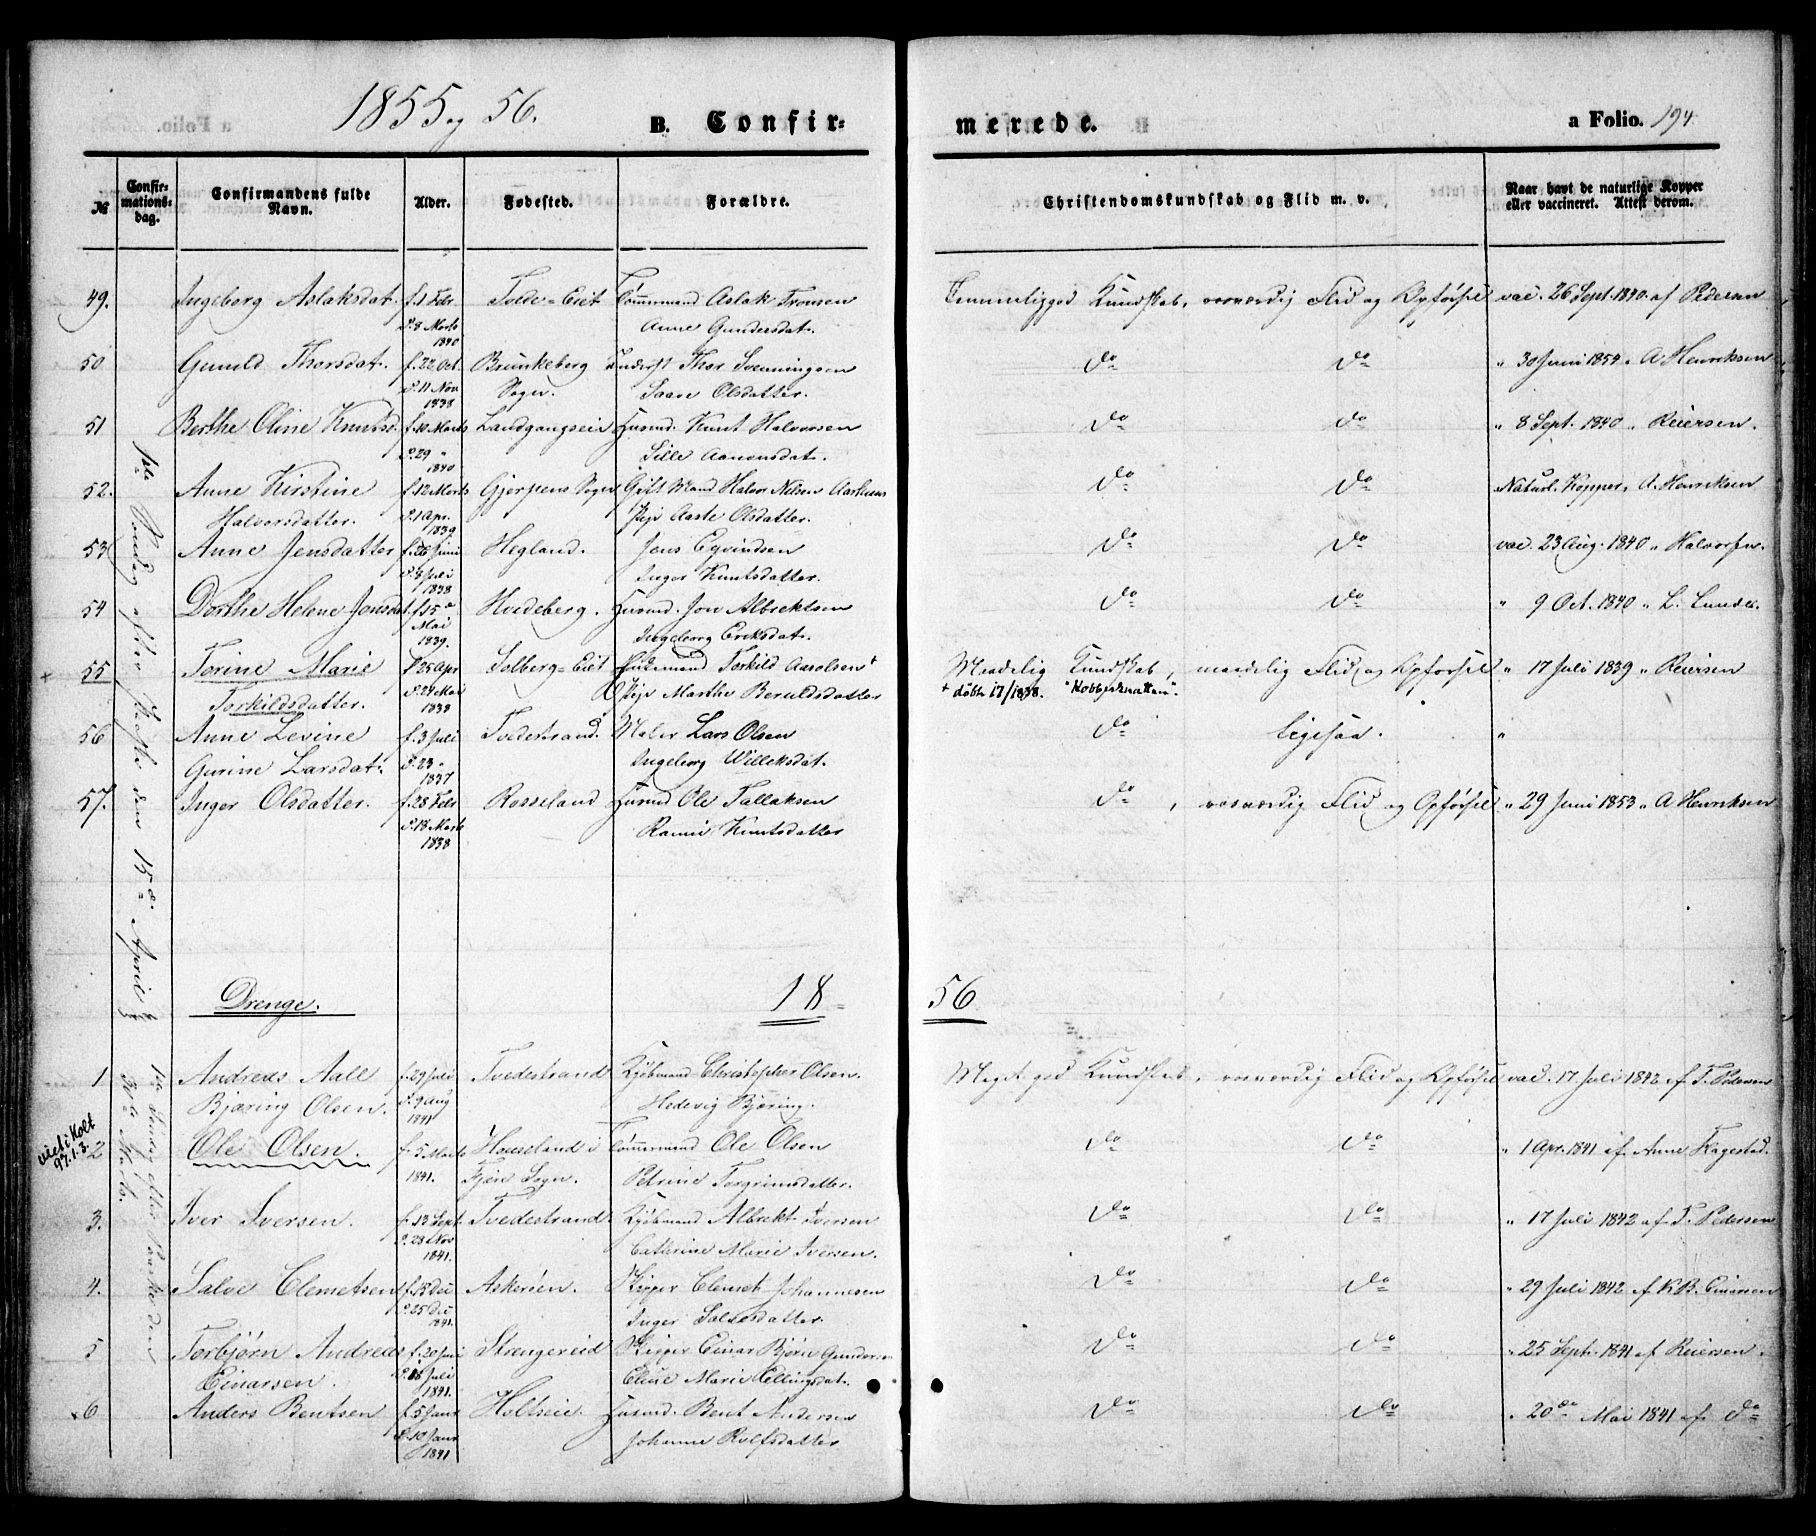 1855 og 56.
B. Confir-
merede.
a Folio. 194
№
Confir-
mations-
dag.
Confirmandens fulde
Navn.
Alder.
Fødested.
Forældre.
Christendomskundskab og Flid m. v.
Naar havt de naturlige Kopper
eller vaccineret. Attest derom.
1ste Søndag efter Paaske den 15de April
49. Ingeborg Aslaksdat. f. 1 Febr Tvede-Eiet Tømmermand Aslak Tronsen Temmeliggod Kundskab, rosværdig Flid og Opførsel vac. 26 Sept. 1840 af Pedersen
d. 8 Marts Anne Gundersdat.
1840
50 Gunild Thorsdat. f. 22 Oct. Brunkeberg Inderst Thor Svenningsen do do " 30 Juni 1854 " A Henriksen
d. 11 Nov Sogn. Saave Olsdatter.
1838
51 Berthe Oline Knutsd f. 10 Marts Landgangseie Husmd. Knut Halvorsen do do " 8 Sept. 1840 " Reiersen.
d. 29 " Sille Aanonsdat.
1840
52. Anne Kirstine f. 12 Marts Gjerpens Sogn Gift Mand Halvor Nilsen Aarhuus do do Naturl. Kopper, A. Henriksen
Halvorsdatter. d. 1 Apr. Pige Aaste Olsdatter.
1839
53 Anne Jensdatter f. 26 Juni Hegland. Jens Eyvindsen do do vac. 23 Aug. 1840 " Halvorsen.
d. 8 Juli Inger Knutsdatter.
1838
54 Dorthe Helene Jonsdat. f. 15de Hvideberg. Husmd. Jon Albrektsen do do " 9 Oct. 1840 " L. Lunde.
Mai Ingeborg Eriksdat.
1839.
55 Torine Marie f. 25 Apr Solberg-Eiet Husmand Torkild Aasolsen + Maadelig Kundskab, maadelig Flid og Opførsel " 17 Juli 1839 " Reiersen
Torkildsdatter. d. 24 Mai Pige Marthe Beruldsdatter + døbte 17/1838. "Kobberknatten".
1838
56 Anne Levine f. 3 Juli Tvedestrand. Maler Lars Olsen do ligesaa. "
Gurine Larsdat. d. 23 " Ingeborg Willeksdat.
1837
57. Inger Olsdatter. f. 28 Febr Rosseland Husmd Ole Tallaksen do, rosværdig Flid og Opførsel " 29 Juni 1853 " A Henriksen
d. 18 Marts Knutsdatter
1838
Drenge.
18 56
1 Andreas Aall f. 29 Juli Tvedestrand Kjøbmand Christopher Olsen. Meget god Kundskab, rosværdig Flid og Opførsel vac. 17 Juli 1842 af T. Pedersen
Bjæring Olsen. d. 9 Aug Hedevig Bjæring.
1841
viet i Holt
97.1.3.
2 Ole Olsen. f. 5 Marts i Tømmermand Ole Olsen do do " 1 Apr. 1841 af Anne Fagestad.
1841. Fjære Sogn. Petrine Torgrimsdatter.
3. Iver Iversen. f. 13 Sept. Tvedestrand. Kjøbmand Albrekt Iversen do do " 17 Juli 1842 af T. Pedersen
d. 28 Nov Cathrine Marie Iversen.
1841.
4. Salve Clemetsen f. 13 Dec Askerøen. Skipper Clemet Johannesen do do " 29 Juli 1842 af K B. Einersen
d. 25 Dec Inger Salvesdatter.
1841.
5 Torbjørn Andreas f. 20 Juni Strengereid Skipper Einar Bjørn Gundersen do do " 25 Sept. 1841 af Reiersen.
Einarsen. Juli Eline Marie Ellingsdat.
1841.
6 Anders Bentsen f. 5 Janr Holtseie. Husmd. Bent Andersen do do " 20de Mai 1841 af do
d. 10 Janr Johanne Rolfsdatter
1841